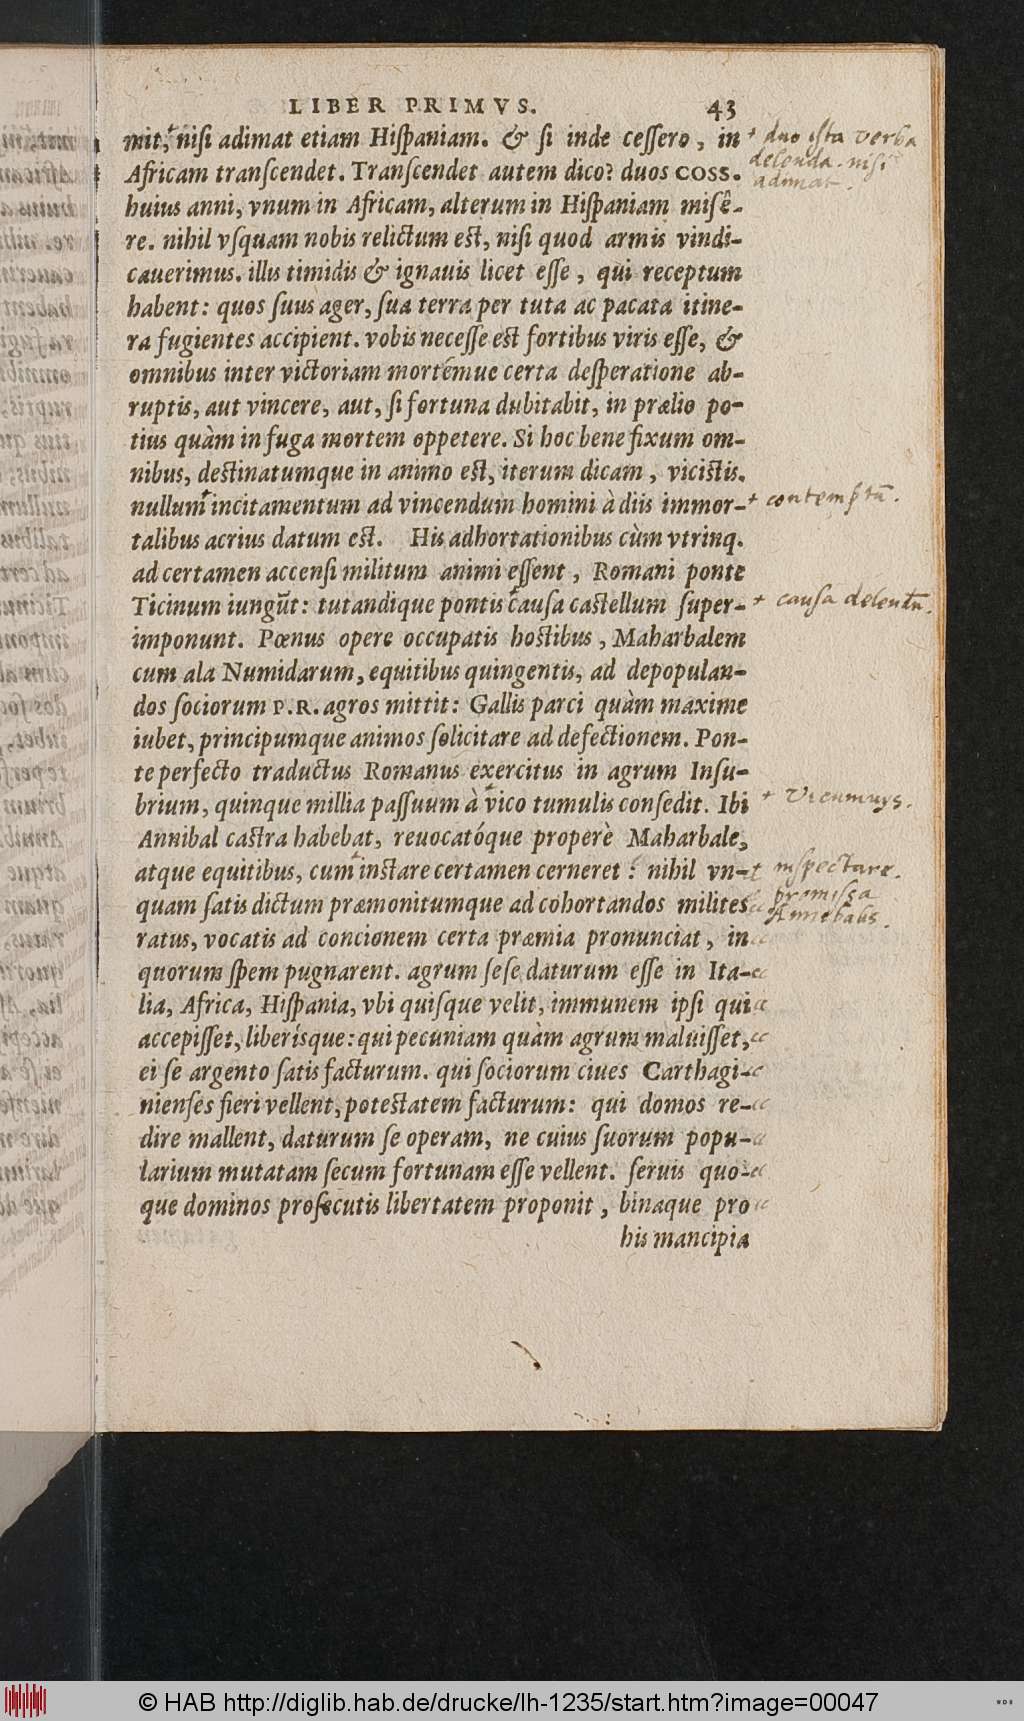 LIBER PRIMVS. 43
mit, nisi adimat etiam Hispaniam. & si inde cessero, in
Africam transcendet. Transcendet autem dico? duos COSS.
huius anni, vnum in Africam, alterum in Hispaniam misê-
re. nihil vsquam nobis relictum est, nisi quod armis vindi-
cauerimus. illis timidis & ignauis licet esse, qui receptum
habent: quos suus ager, sua terra per tuta ac pacata itine-
ra fugientes accipient. vobis necesse est fortibus viris esse, &
omnibus inter victoriam mortémue certa desperatione ab-
ruptis, aut vincere, aut, si fortuna dubitabit, in prælio po-
tius quàm in fuga mortem oppetere. Si hoc bene fixum om-
nibus, destinatumque in animo est, iterum dicam, vicistis.
nullum incitamentum ad vincendum homini à diis immor-
talibus acrius datum est. His adhortationibus cùm vtrinq.
ad certamen accensi militum animi essent, Romani ponte
Ticinum iungũt: tutandique pontis causa castellum super-
imponunt. Pœnus opere occupatis hostibus, Maharbalem
cum ala Numidarum, equitibus quingentis, ad depopulan-
dos sociorum P.R. agros mittit: Gallis parci quàm maxime
iubet, principumque animos solicitare ad defectionem. Pon-
te perfecto traductus Romanus exercitus in agrum Insu-
brium, quinque millia passuum à vico tumulis consedit. Ibi
Annibal castra habebat, reuocatóque properè Maharbale,
atque equitibus, cum instare certamen cerneret: nihil vn-
quam satis dictum præmonitumque ad cohortandos milites
ratus, vocatis ad concionem certa præmia pronunciat, in
quorum spem pugnarent. agrum sese daturum esse in Ita-
lia, Africa, Hispania, vbi quisque velit, immunem ipsi qui
accepisset, liberísque: qui pecuniam quàm agrum maluisset,
ei se argento satis facturum. qui sociorum ciues Carthagi-
nienses fieri vellent, potestatem facturum: qui domos re-
dire mallent, daturum se operam, ne cuius suorum popu-
larium mutatam secum fortunam esse vellent. seruis quo-
que dominos prosecutis libertatem proponit, binaque pro
his mancipia
+ duo ista verba
delenda. nisi
adimat.
+ contemptũ.
+ causa delent.
+ Vicumuys.
+ inspectare.
promissa
Annibalis.
© HAB http://diglib.hab.de/drucke/lh-1235/start.htm?image=00047